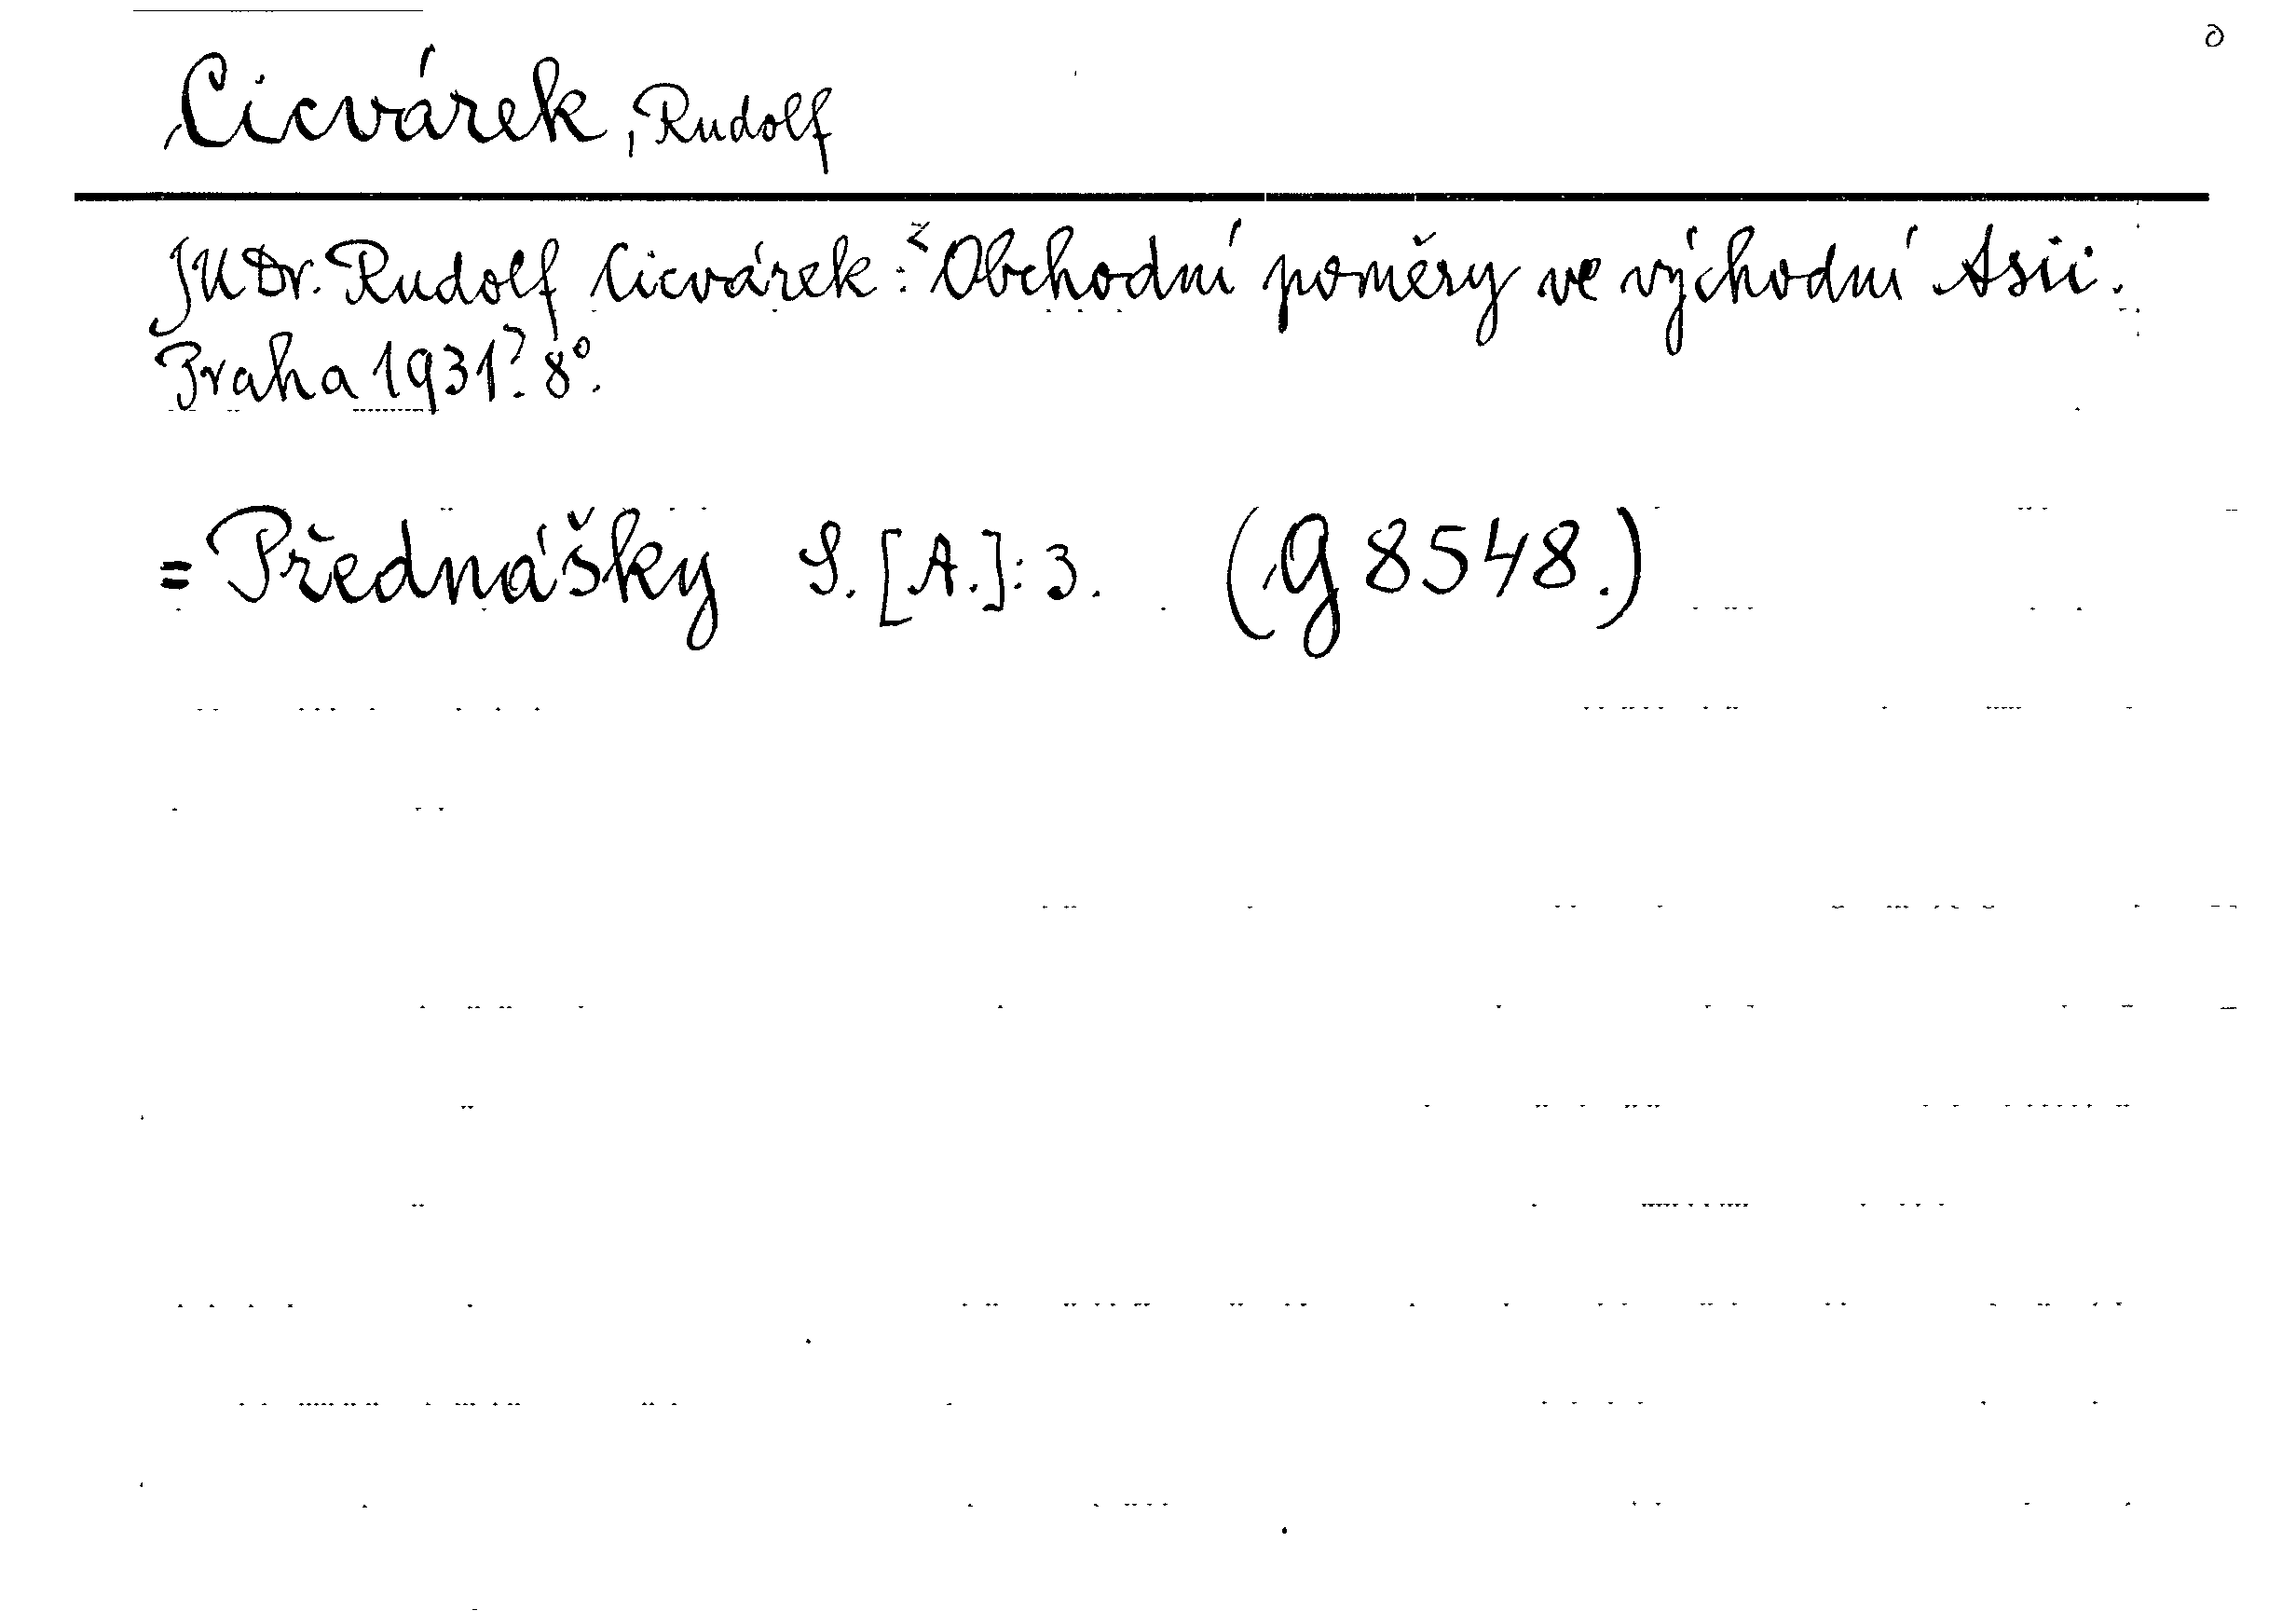 Cicvárek, Rudolf
JUDr. Rudolf Cicvárek: Obchodní poměry ve východní Asii.
Praha 1931? 8°.
= Přednášky S. [A.]: 3. (G 8548.)